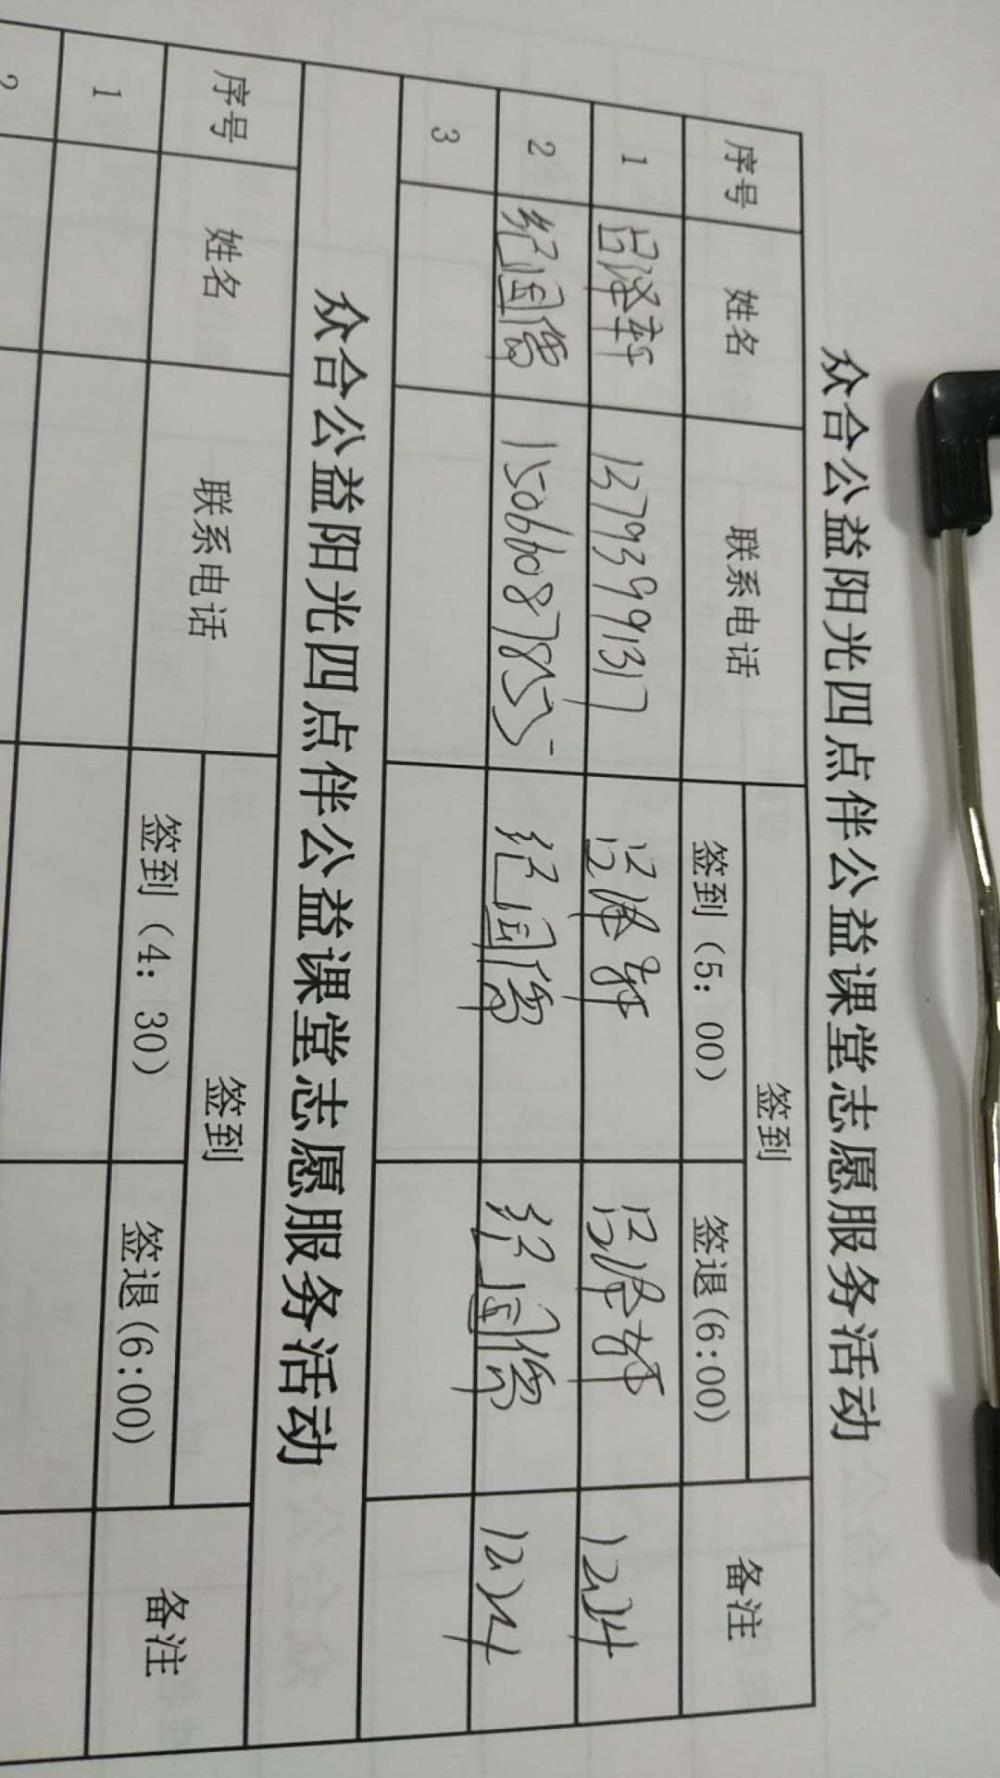 众合公益阳光四点伴公益课堂志愿服务活动
序号 姓名 联系电话 签到 备注
签到（5：00） 签退(6:00)
1 吕泽轩 137939991317 吕泽轩 吕泽轩 12.24
2 纪国儒 15066087855 纪国儒 纪国儒 12.24
3
众合公益阳光四点伴公益课堂志愿服务活动
序号 姓名 联系电话 签到 备注
签到（4：30） 签退(6:00)
1
2